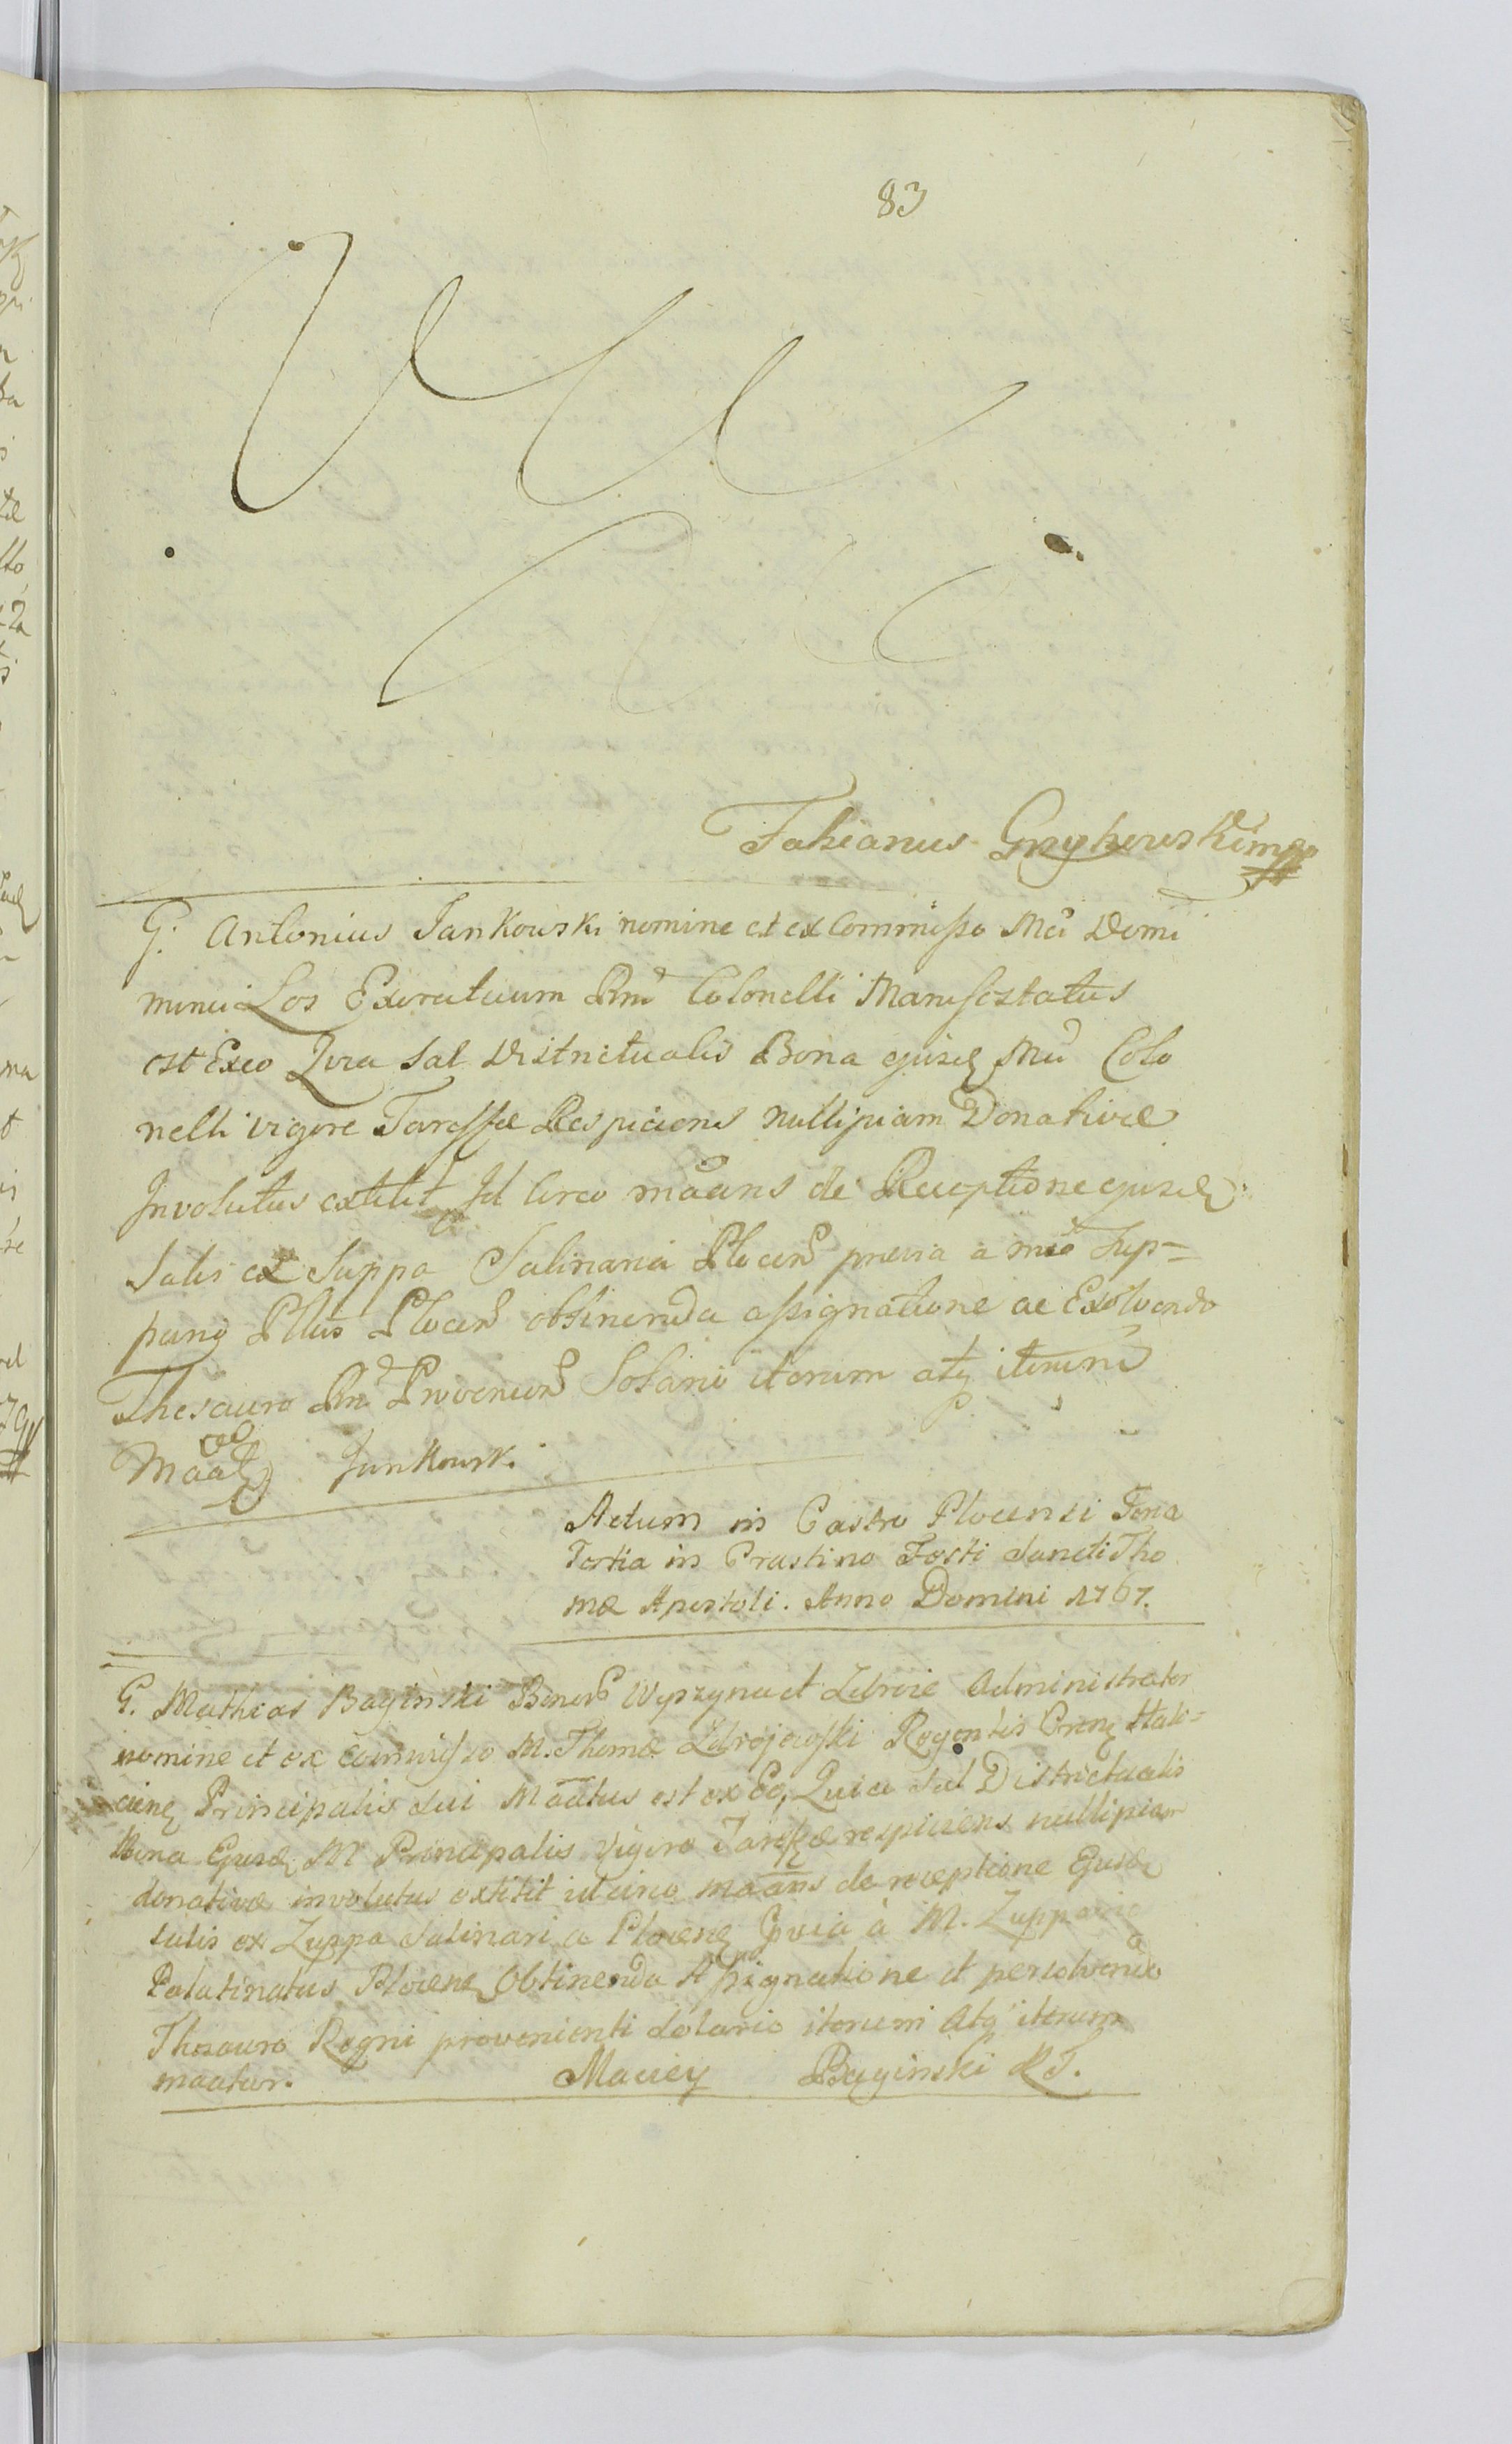 83
Fabianus
G. Antonius Jankowski nomine et ex Commisso Mci Domi
minici Los Exercituum Rni Colonelli Manifestatus
est Exeo Qvia Sal Districtualis Bona ejusd Mci Colo
nelli vigore Tareffæ Respiciens nullipiam Donativæ
Involutus extitit Id Circo maans de Receptione ejusd
Salis ex Suppa Salinaria Plocens previa a mco Sup=
pano Pltus Plocens obtinenda assignatione ac Exolvendo
Thesauro Rni Provenien Solario iterum atq iterum
Maat Jankowski
Actum in Castro Plocensi Feria
Tertia in Crastino Festi Sancti Tho
mæ Apostoli. Anno Domini 1767.
G. Mathias Baginski Bonor Wyszyna et Zdroie Administrator
nomine et ex Commisso M. Thomæ Zdrojewski Regentis Cren Hali=
cien Principalis sui Maatus est ex Eo, Quia Sal Districtualis
Bona Ejusd M Principalis vigore Tareffæ respiciens nullipiam
donativæ involutus extitit id circo maans de receptione Ejusd
salis ex Zuppa Salinari a Plocen Pvia à M. Zuppario
Palatinatus Plocen Obtinenda Assignatione et persolvendo
Thesauro Regni provenienti Solario iterum Atq iterum
maatur. Maciey Baginski